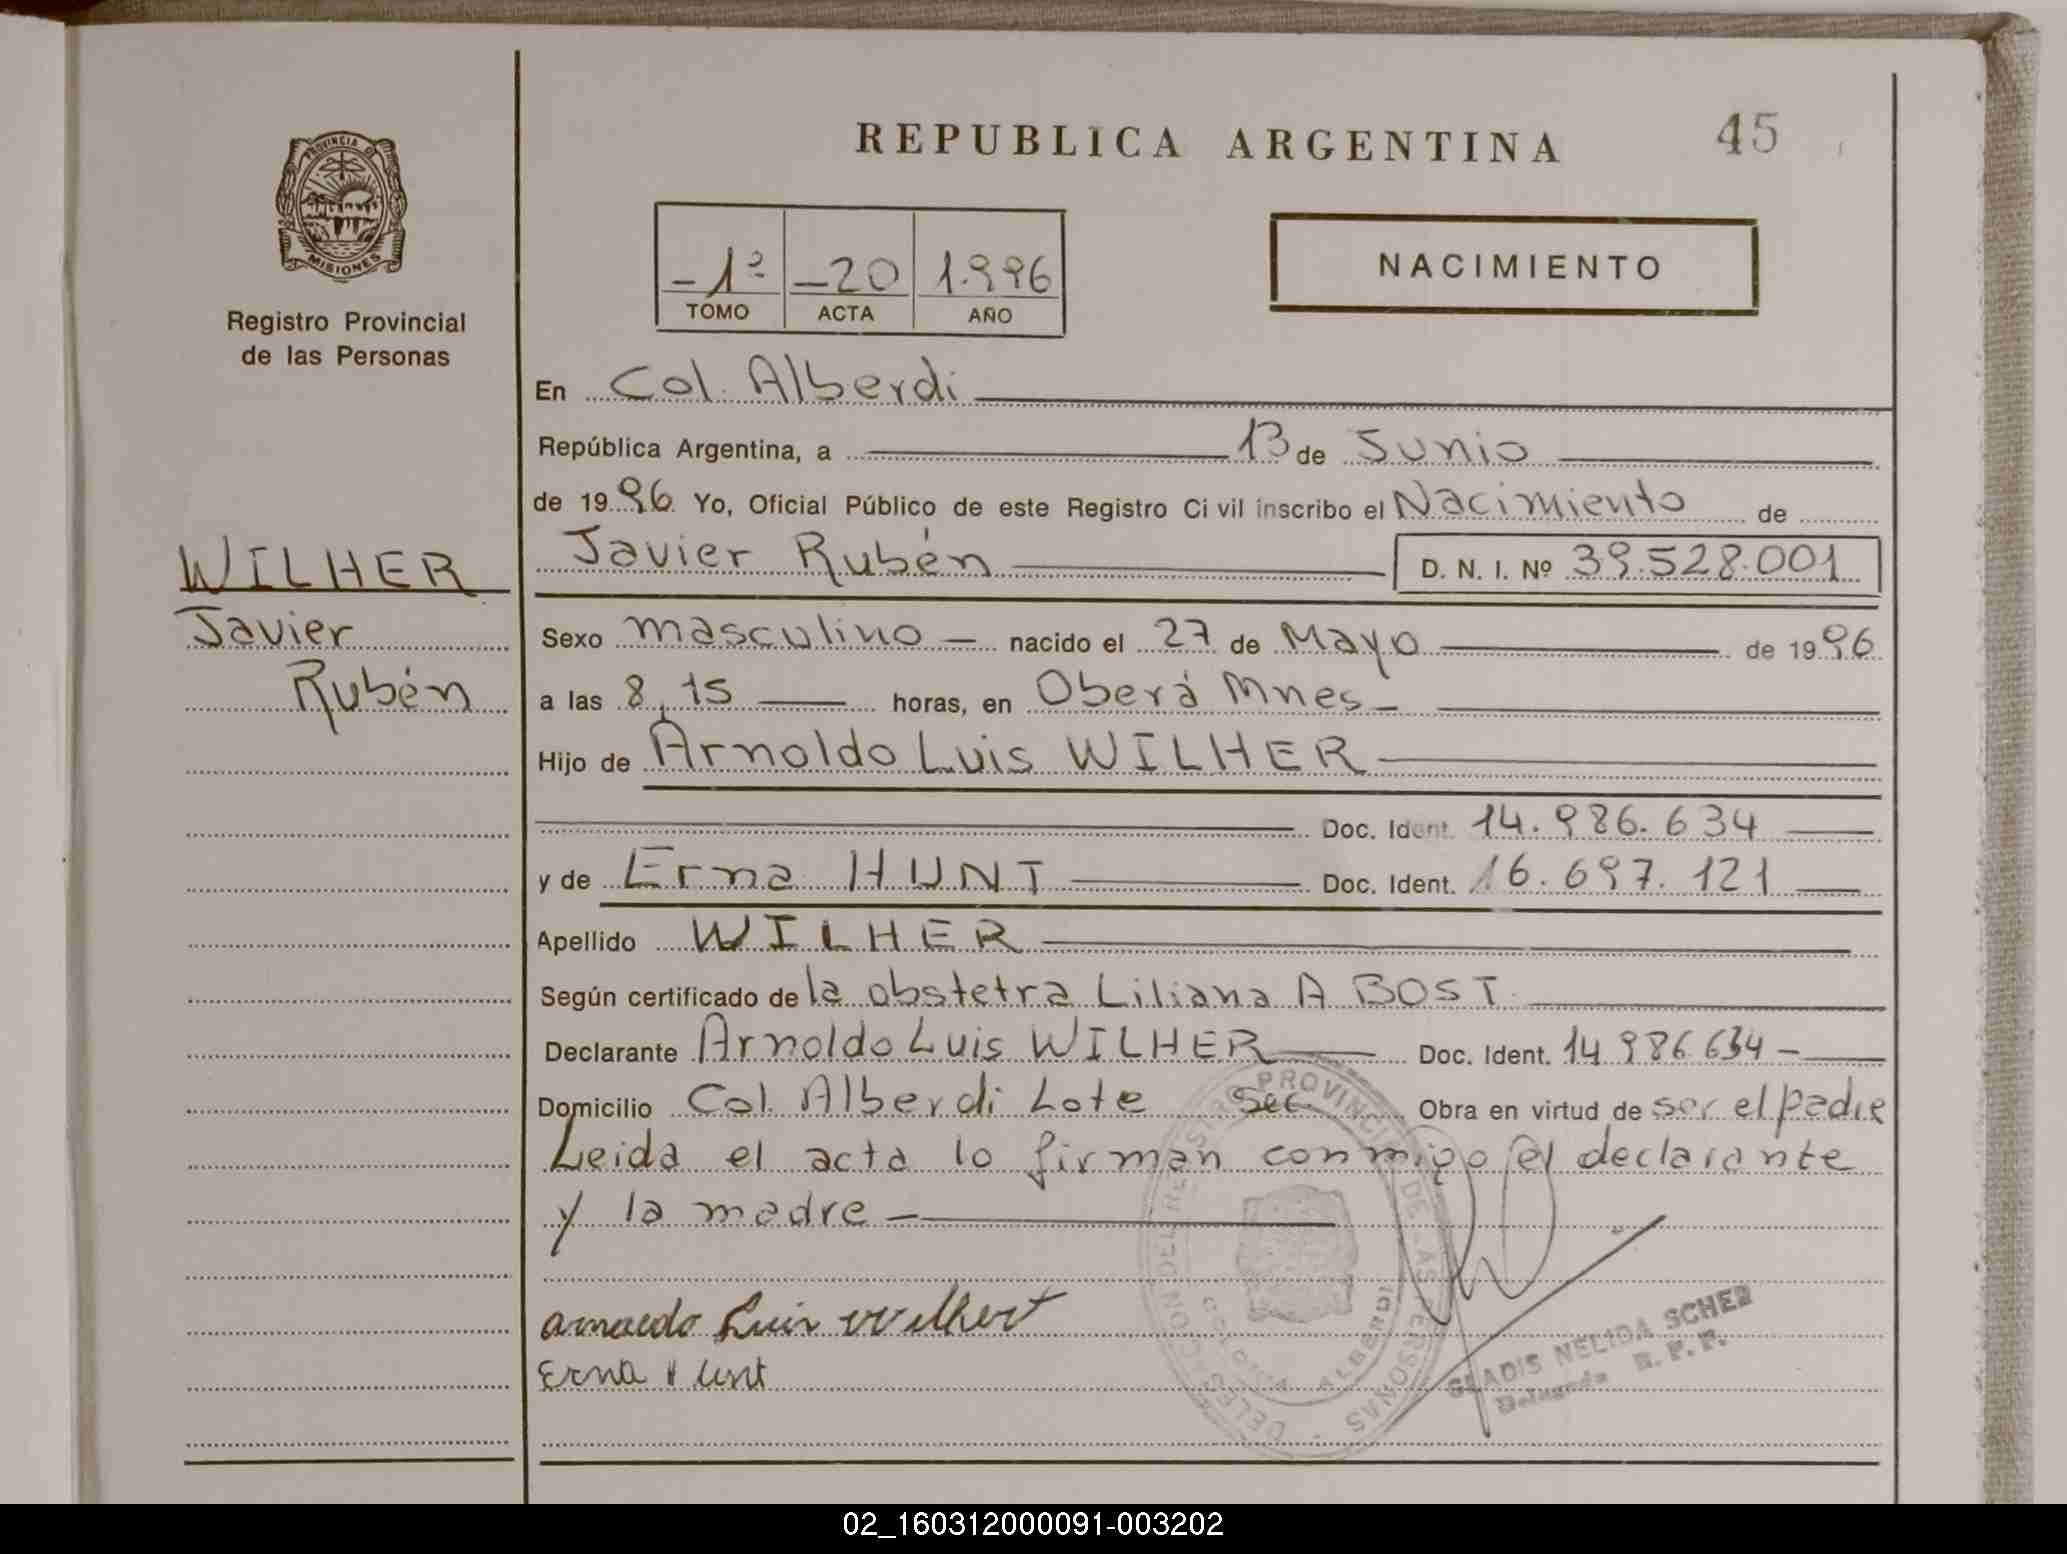 REPUBLICA ARGENTINA
45
PROVINCIA DE
MISIONES
Registro Provincial
de las Personas
- 1º - 20 1.996
TOMO ACTA AÑO
NACIMIENTO
En Col. Alberdi
República Argentina, a 13 de Junio
de 1996 Yo, Oficial Público de este Registro Civil inscribo el Nacimiento de
WILHER
Javier Rubén
D. N. I. Nº 39.528.001
Javier
Rubén
Sexo masculino - nacido el 27 de Mayo de 1996
a las 8,15 horas, en Oberá Mnes -
Hijo de Arnoldo Luis WILHER
Doc. Ident. 14.986.634
y de Erna HUNT Doc. Ident. 16.697.121
Apellido WILHER
Según certificado de la obstetra Liliana A BOST
Declarante Arnoldo Luis WILHER Doc. Ident. 14 986 634 -
Domicilio Col. Alberdi Lote Sec. Obra en virtud de ser el padre
Leida el acta lo firman conmigo el declarante
y la madre -
DELEGACION DEL REGISTRO PROVINCIAL DE LAS PERSONAS
COLONIA ALBERDI
Luis
Erna Hunt
GLADIS NELIDA SCHER
Delegada R. P. P.
02_160312000091-003202